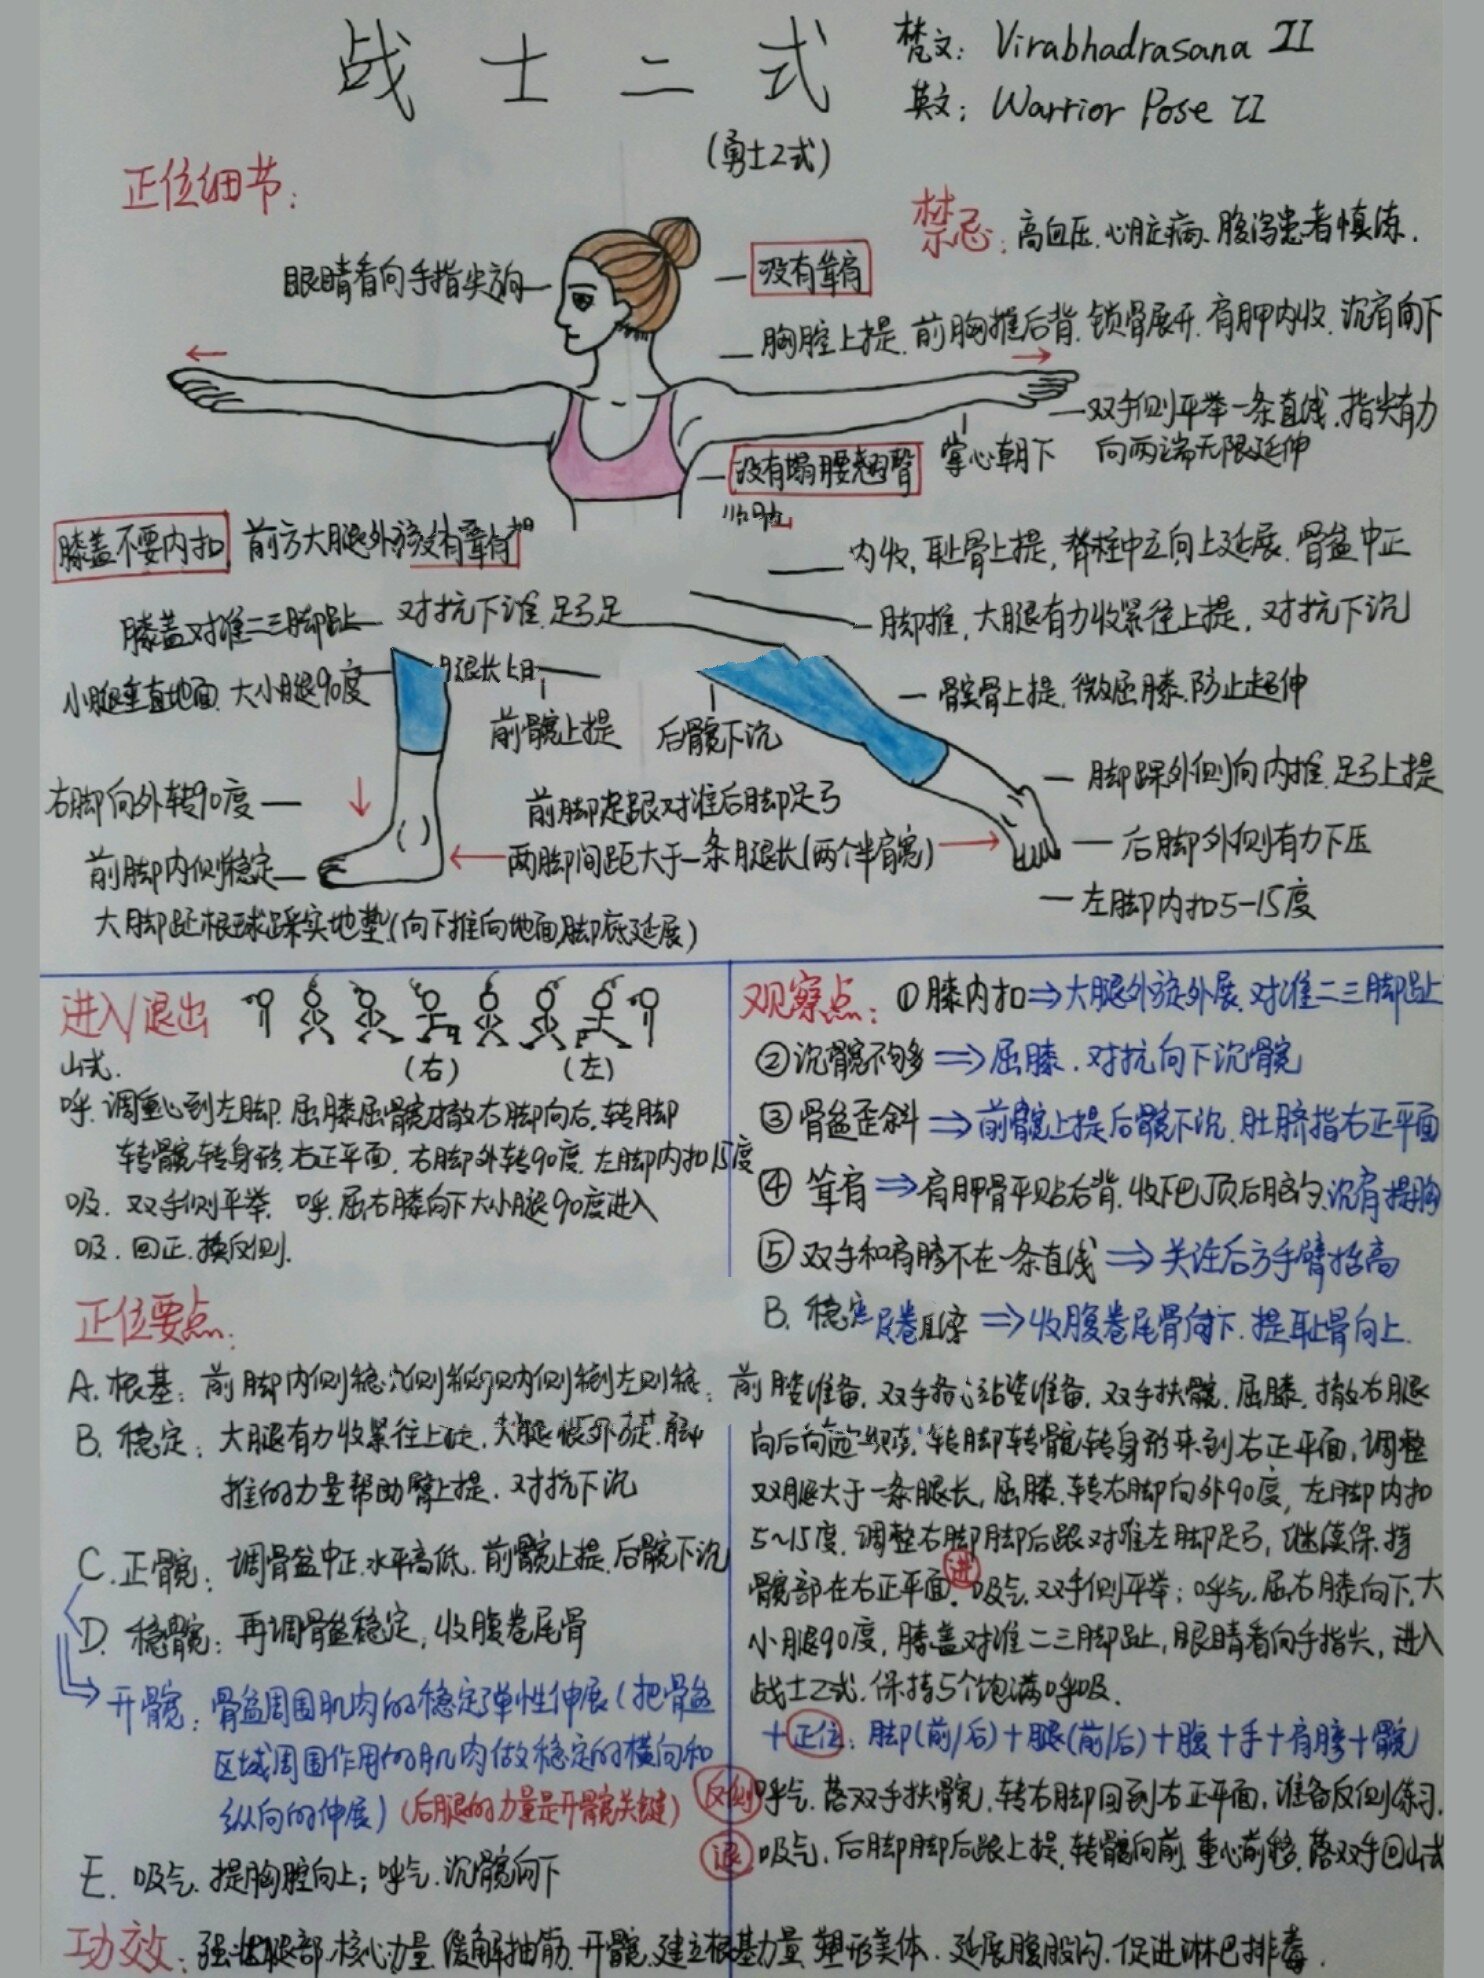 战士二式
梵文: Virabhadrasana II
英文: Warrior Pose II
(勇士2式)
正位细节:
禁忌: 高血压.心脏病.腹泻患者慎练.
眼睛看向手指尖方向
没有耸肩
胸腔上提.前胸推后背.锁骨展开.肩胛内收.沉肩向下
双手侧平举一条直线.指尖有力
向两端无限延伸
掌心朝下
没有塌腰翘臀
膝盖不要内扣 前方大腿外旋
内收,耻骨上提,脊柱中立向上延展.骨盆中正
膝盖对准二三脚趾
对抗下 足弓足
脚推,大腿有力收紧往上提,对抗下沉
小腿垂直地面.大小腿90度
腿长
髌骨上提,微屈膝.防止超伸
前髋上提
后髋下沉
右脚向外转90度
前脚足跟对准后脚足弓
脚踝外侧向内推.足弓上提
两脚间距大于一条腿长(两个半肩宽)
后脚外侧有力下压
前脚内侧稳定
左脚内扣5-15度
大脚趾根球踩实地垫(向下推向地面,脚底延展)
进入/退出
(右) (左)
山式.
呼.调重心到左脚.屈膝屈髋才撤右脚向后.转脚
转髋转身形.右正平面.右脚外转90度.左脚内扣15度
吸.双手侧平举. 呼.屈右膝向下大小腿90度进入
吸.回正.换反侧.
观察点: ①膝内扣⇒大腿外旋外展.对准二三脚趾
②沉髋不够⇒屈膝.对抗向下沉髋
③骨盆歪斜⇒前髋上提后髋下沉.肚脐指右正平面
④耸肩⇒肩胛骨平贴后背.收下巴顶后脑勺.沉肩提胸
⑤双手和肩膀不在一条直线⇒关注后方手臂抬高
B. 稳定 ⇒收腹卷尾骨向下.提耻骨向上.
正位要点:
A.根基: 前脚内侧稳
B.稳定: 大腿有力收紧往上
推的力量帮助臀上提.对抗下沉
C.正髋: 调骨盆中正.水平高低.前髋上提.后髋下沉
D.稳髋: 再调骨盆稳定,收腹卷尾骨
开髋: 骨盆周围肌肉的稳定弹性伸展(把骨盆
区域周围作用的肌肉做稳定的横向和
纵向的伸展) (后腿的力量是开髋关键)
E. 吸气.提胸腔向上;呼气.沉髋向下
站姿准备.双手扶髋.屈膝.撤右腿
向后 转脚转髋转身形来到右正平面,调整
双腿大于一条腿长,屈膝.转右脚向外90度,左脚内扣
5~15度.调整右脚脚后跟对准左脚足弓,继续保持
髋部在右正平面.进 吸气.双手侧平举;呼气.屈右膝向下.大
小腿90度,膝盖对准二三脚趾,眼睛看向手指尖,进入
战士2式.保持5个饱满呼吸.
+正位: 脚(前/后)+腿(前/后)+腹+手+肩膀+髋
反侧 呼气.落双手扶髋.转右脚回到右正平面.准备反侧练习.
退 吸气.后脚脚后跟上提.转髋向前.重心前移.落双手回山式
功效: 强壮腿部.核心力量.缓解抽筋.开髋.建立根基力量.塑形美体.延展腹股沟.促进淋巴排毒.